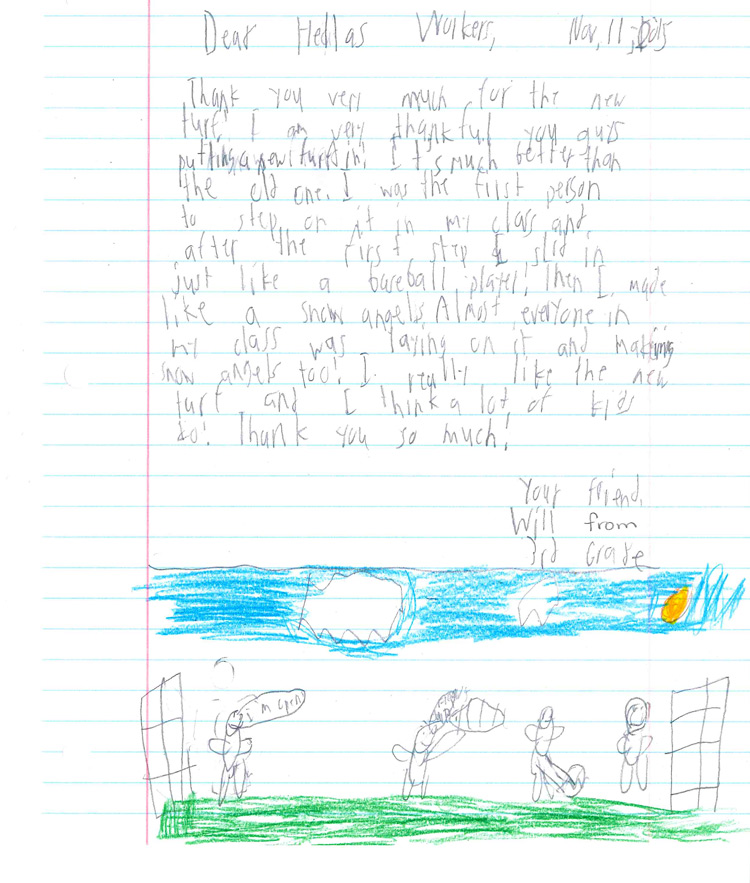 Dear Hellas Workers, Nov, 11, 2015
Thank you very much for the new
turf! I am very thankful you guys
putting a new turf in! It's much better than
the old one. I was the first person
to step on it in my class and
after the first step I slid in
just like a baseball player! Then I made
like a snow angels. Almost everyone in
my class was laying on it and making
snow angels too! I really like the new
turf and I think a lot of kids
do! Thank you so much!
Your friend,
Will from
3rd Grade
i'm open